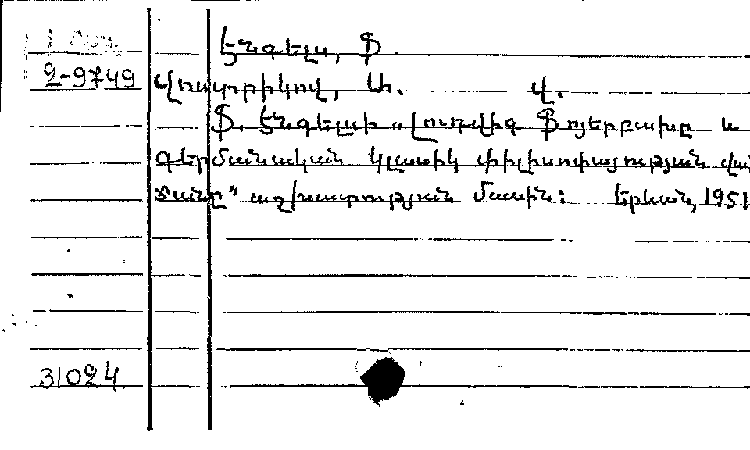 Էնգելս, Ֆ.
2-9749 Վոստրիկով, Ա. Վ.
Ֆ. Էնգելսի „Լուդվիգ Ֆոյերբախը և
գերմանական կլասիկ փիլիսոփայության վախ
ճանը" աշխատության մասին: Երևան, 1951
31024